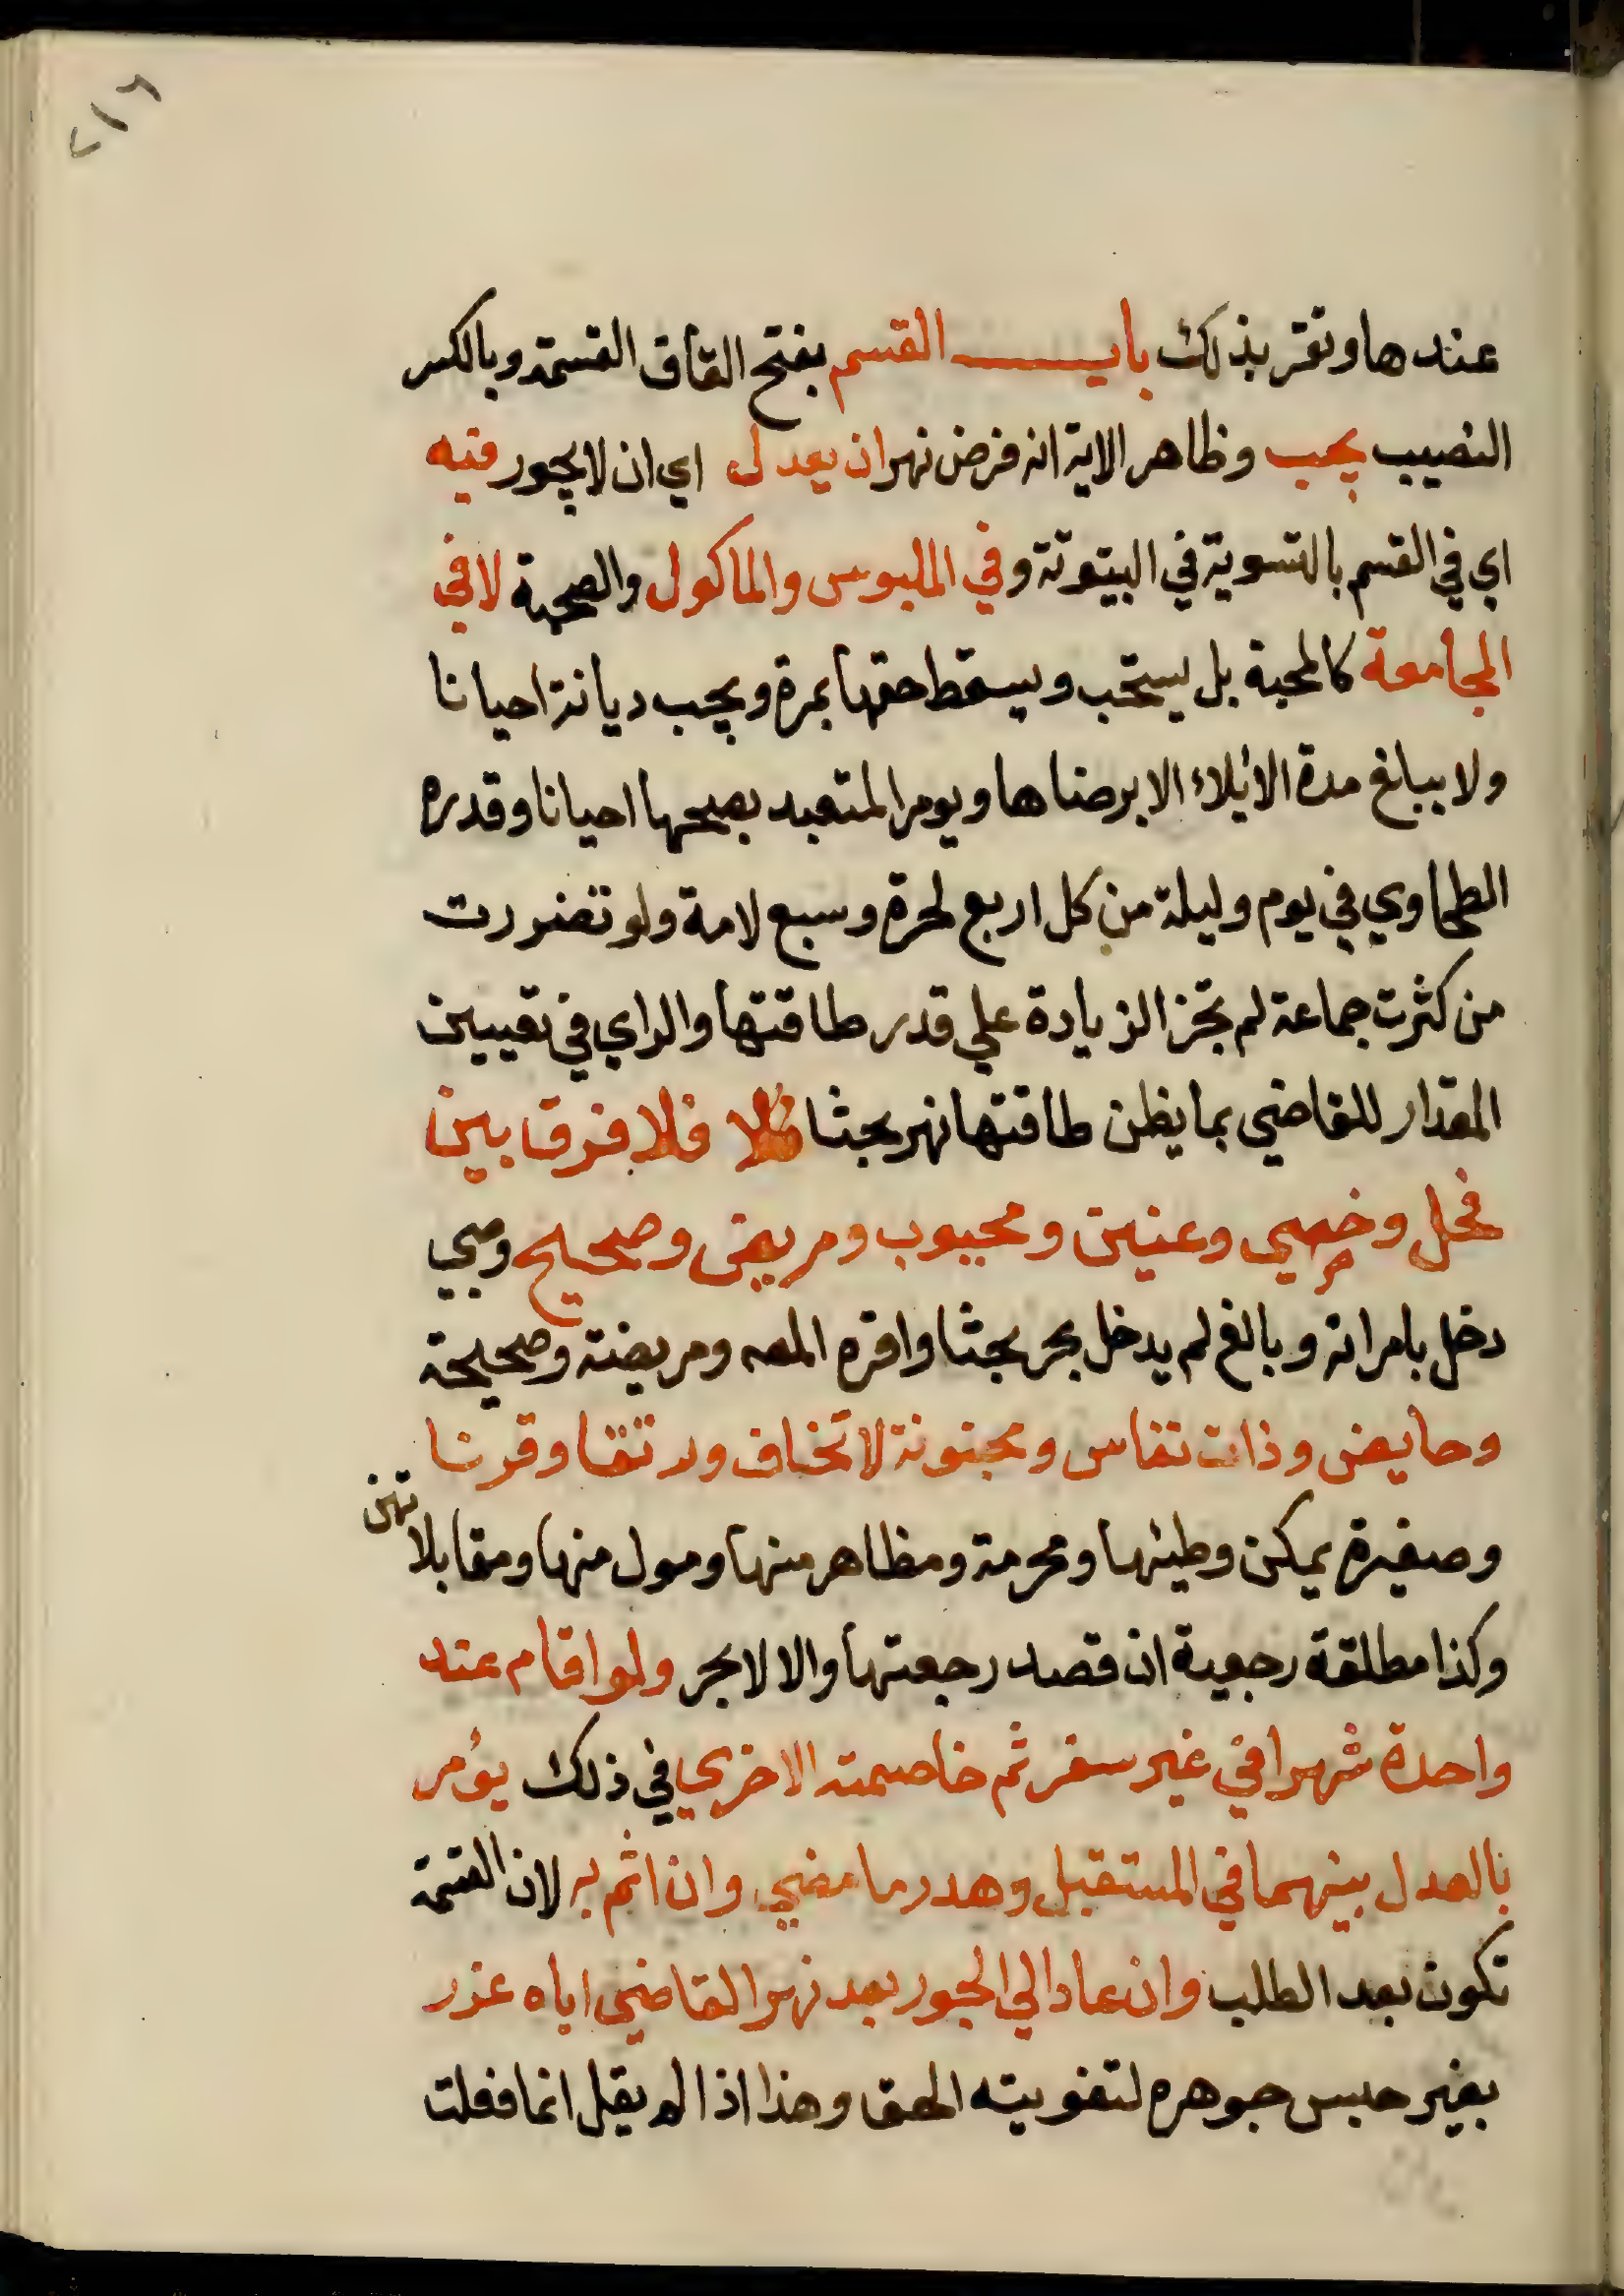 ٢١٦
عندها وتقر بذلك باب القسم بفتح القاف القسمة وبالكسر
النصيب يجب وظاهر الاية انه فرض نهر ان يعدل اي ان لا يجور فيه
اي في القسم بالتسوية في البيتوتة وفي الملبوس والماكول والصحبة لا في
المجامعة كالمحبة بل يستحب ويسقط حقها بمرة ويجب ديانة احيانا
ولا يبالغ مدة الائلاء الا برضاها ويومر المتعبد بصحبها احيانا وقدره
الطحاوي في يوم وليلة من كل اربع لحرة وسبع لامة ولو تضررت
من كثرت جماعة لم تجز الزيادة علي قدر طاقتها والراي في تعيين
المقدار للقاضي بما يظن طاقتها نهر بحثا فلا فرق بين
فحل وخصي وعنين ومجبوب ومريض وصحيح وصبي
دخل بامراته وبالغ لم يدخل بحر بحثا واقره المصه ومريضة وصحيحة
وحايض وذات نفاس ومجنونة لا تخاف ورتقا وقرنا
وصغيرة يمكن وطئها ومحرمة ومظاهر منها ومول منها ومقابلاتهن
وكذا مطلقة رجعية ان قصد رجعتها والا لا بحر ولو اقام عند
واحدة شهرا في غير سفر ثم خاصمته الاخري في ذلك يؤمر
بالعدل بينهما في المستقبل وهدر ما مضي وان اثم به لان القسمة
تكون بعد الطلب وان عاد الي الجور بعد نهي القاضي اياه عزر
بغير حبس جوهره لتفويته الحق وهذا اذا لم يقل انما فعلت